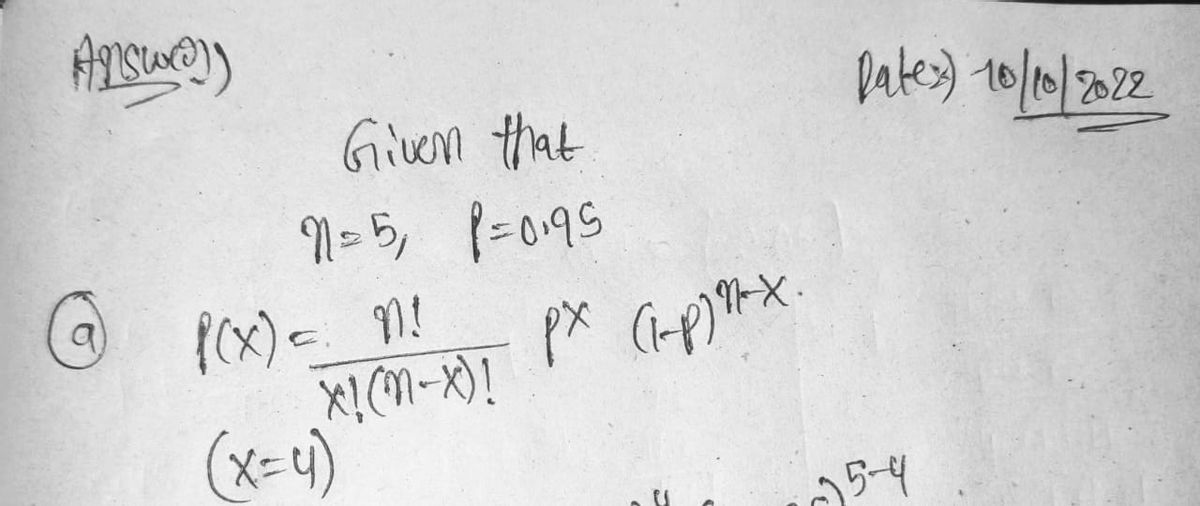 Answer)) Date:) 10/10/2022
Given that
n=5, p=0.95
(a) P(x) = n! / x!(n-x)! p^x (1-p)^n-x.
(x=4)
5-4